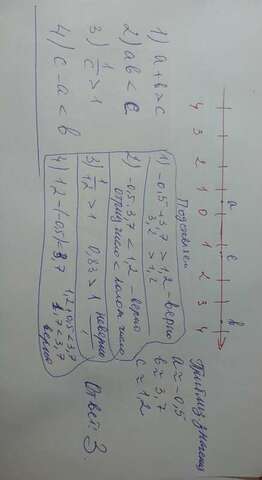 4 3 2 1 0 1 2 3 4
a c b
1) a+b>c
2) ab < c
3) 1/c > 1
4) c-a < b
Приближ значения
a ≈ -0,5
b ≈ 3,7
c ≈ 1,2
Подставляем
1) -0,5+3,7 > 1,2 - верно
3,2 > 1,2
2) -0,5·3,7 < 1,2 - верно
отриц число < полож число
3) 1/1,2 > 1 0,83 > 1 неверно
4) 1,2-(-0,5)< 3,7
1,2+0,5<3,7
1,7<3,7
верно
Ответ: 3.